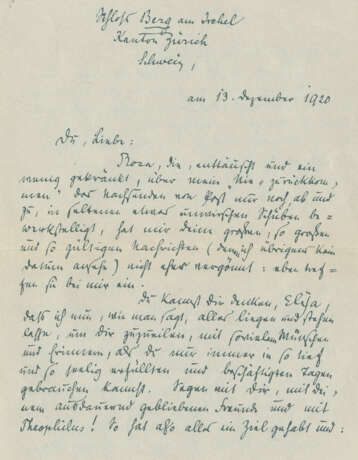 Schloß Berg am Irchel
Kanton Zürich
Schweiz,
am 13. Dezember 1920
Du, Liebe:
Rosa, die, enttäuscht und ein
wenig gekränkt, über mein "Nie-zurückkom-
men" das Nachsenden von Post nur noch ab und
zu, in seltenen etwas unwirschen Schüben be-
werkstelligt, hat mir deine großen, so großen
und so gültigen Nachrichten (denen ich übrigens kein
Datum ansehe) nicht eher vergönnt: eben tref-
fen sie bei mir ein.
Du kannst dir denken, Elya,
daß ich nun, wie man sagt, alles liegen und stehen
lasse, um dir zuzueilen, mit sovielen Wünschen
und Erinnern, als du mir immer in so tief
und so seelig erfüllten und beschäftigten Tagen
gebrauchen kannst. Segen mit Dir, mit dei-
nem ausdauernd gebliebenen Freunde und mit
Theophilus! So hat also alles ein Ziel gehabt und: